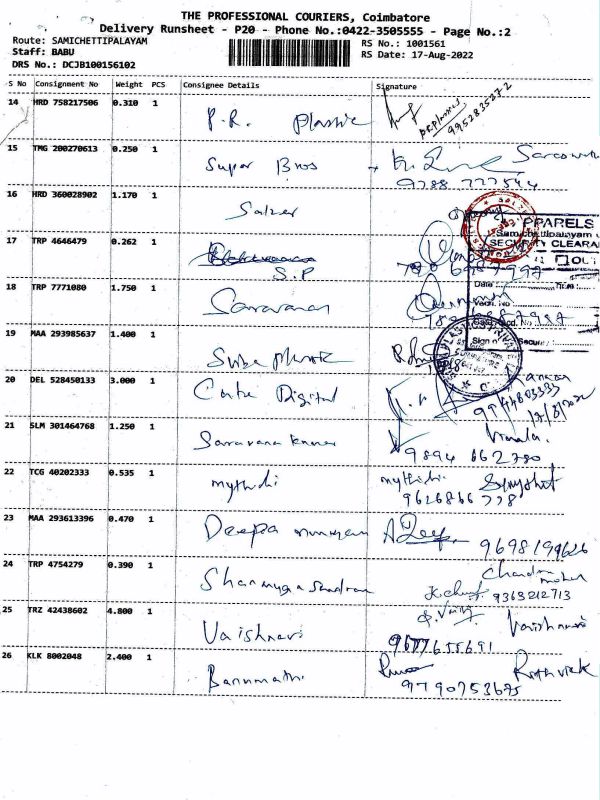 THE PROFESSIONAL COURIERS, Coimbatore
Delivery Runsheet - P20 - Phone No.:0422-3505555 - Page No.:2
Route: SAMICHETTIPALAYAM
Staff: BABU
DRS No.: DCJB100156102
RS No.: 1001561
RS Date: 17-Aug-2022
S No Consignment No Weight PCS Consignee Details Signature
14 HRD 758217506 0.310 1 P.R. Plastic
PR plastics
9952835272
15 TMG 200270613 0.250 1 Super Bros
9788 777544
16 HRD 360028902 1.170 1 Salzer
17 TRP 4646479 0.262 1
S.P
18 TRP 7771080 1.750 1 Saravanan
19 MAA 293985637 1.400 1
20 DEL 528450133 3.000 1 Digital
17/8/2022
21 SLM 301464768 1.250 1 Saravana kumar Vimala.
9894 662780
22 TCG 40202333 0.535 1 mythili mythili
9626866778
23 MAA 293613396 0.470 1 Deepa
9698199626
24 TRP 4754279 0.390 1 Shanmuga Sundram Chandra mohan
9363212713
25 TRZ 42438602 4.800 1 Vaishnavi Vaishnavi
9677655691
26 KLK 8002048 2.400 1 Banumathi Rithvick
9790753675
PPARELS
Samichettipalayam
SECURITY CLEARA
OU
Date Time:
Vech. No
Sign Secure: